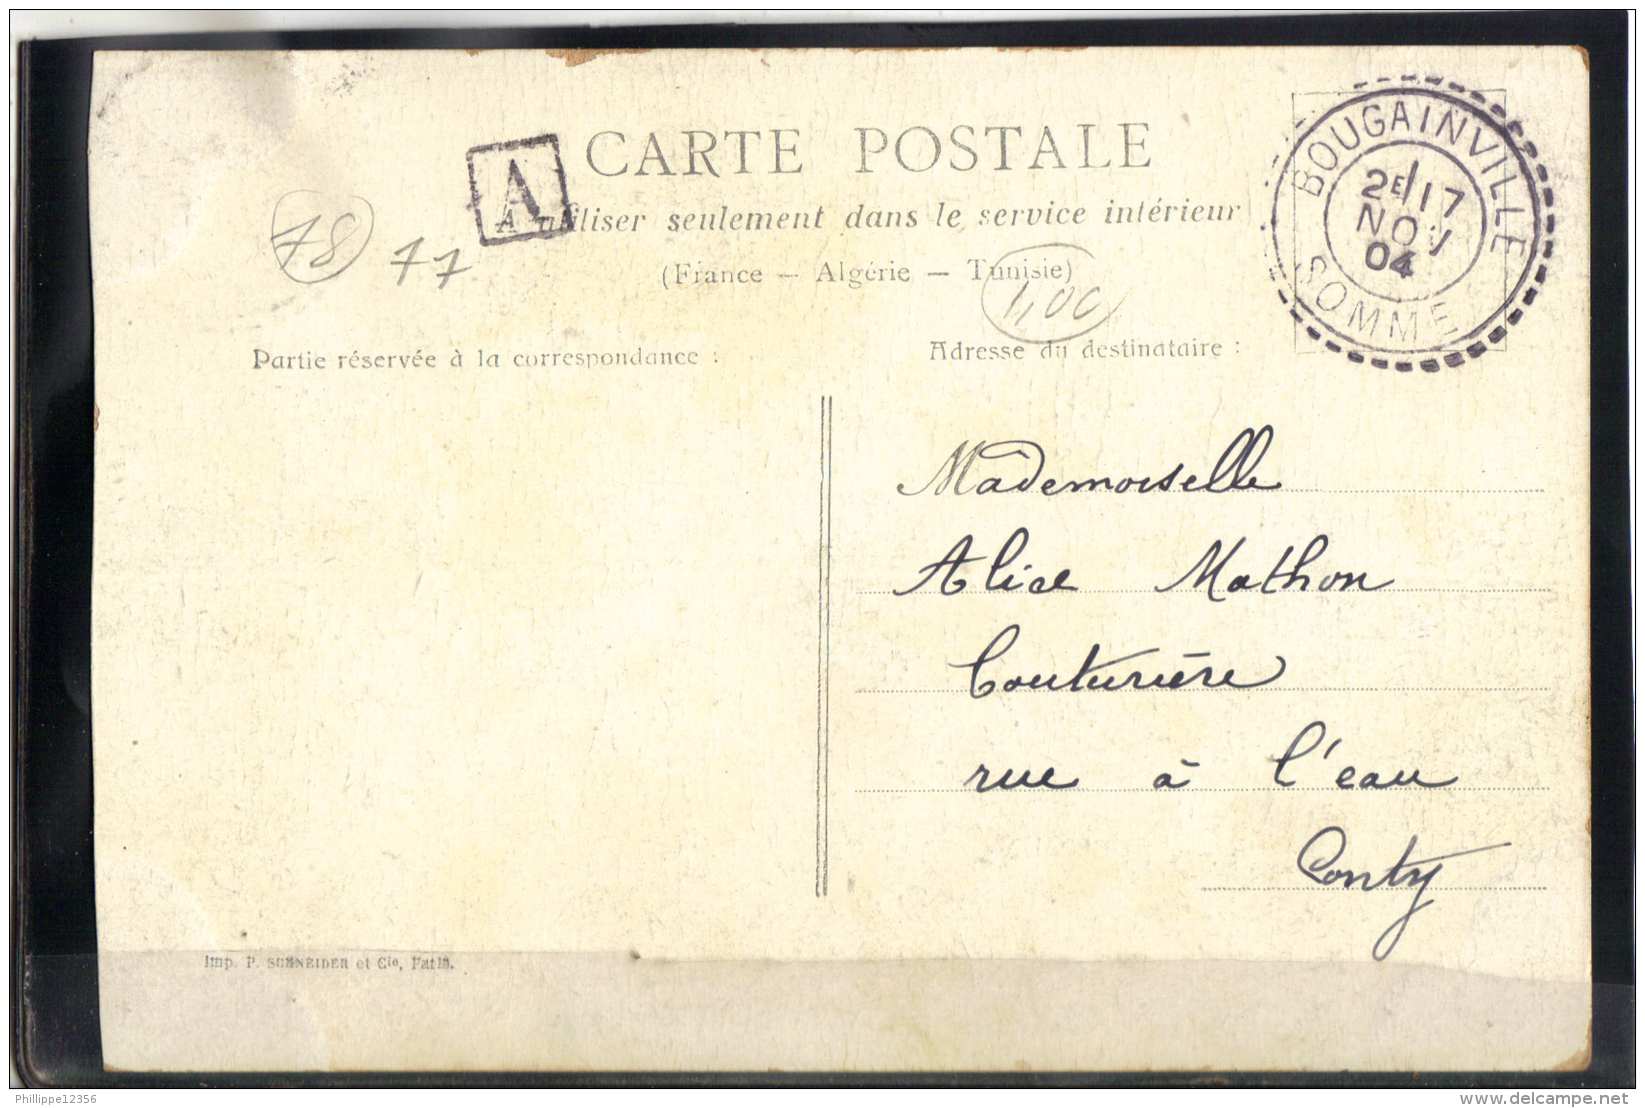 CARTE POSTALE
A
A utiliser seulement dans le service intérieur
(France — Algérie — Tunisie)
78
77
1,00
BOUGAINVILLE
2E/17
NOV
04
SOMME
Partie réservée à la correspondance :
Adresse du destinataire :
Mademoiselle
Alice Mathon
Couturière
rue à l'eau
Conty
Imp. P. SCHNEIDER et Cie, Paris.
Philippe12356
delcampe.net